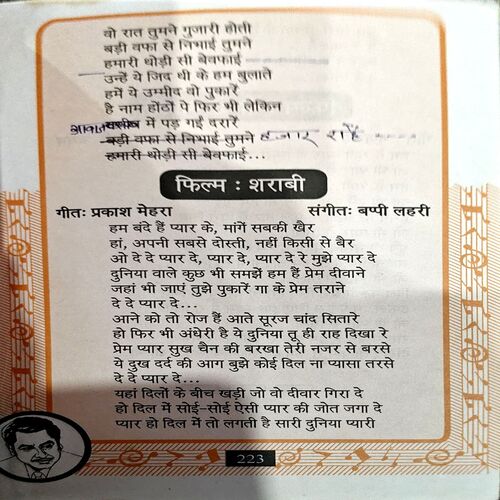 वो रात तुमने गुजारी होती
बड़ी वफा से निभाई तुमने
हमारी थोड़ी सी बेवफाई
उन्हें ये जिद थी के हम बुलाते
हमें ये उम्मीद वो पुकारें
है नाम होंठों पे फिर भी लेकिन
आवाज में पड़ गईं दरारें
बड़ी वफा से निभाई तुमने हजार राहें
हमारी थोड़ी सी बेवफाई...
फिल्म : शराबी
गीत: प्रकाश मेहरा संगीत: बप्पी लहरी
हम बंदे हैं प्यार के, मांगें सबकी खैर
हां, अपनी सबसे दोस्ती, नहीं किसी से बैर
ओ दे दे प्यार दे, प्यार दे, प्यार दे रे मुझे प्यार दे
दुनिया वाले कुछ भी समझें हम हैं प्रेम दीवाने
जहां भी जाएं तुझे पुकारें गा के प्रेम तराने
दे दे प्यार दे...
आने को तो रोज हैं आते सूरज चांद सितारे
हो फिर भी अंधेरी है ये दुनिया तू ही राह दिखा रे
प्रेम प्यार सुख चैन की बरखा तेरी नजर से बरसे
ये दुख दर्द की आग बुझे कोई दिल ना प्यासा तरसे
दे दे प्यार दे...
यहां दिलों के बीच खड़ी जो वो दीवार गिरा दे
हो दिल में सोई-सोई ऐसी प्यार की जोत जगा दे
प्यार हो दिल में तो लगती है सारी दुनिया प्यारी
223